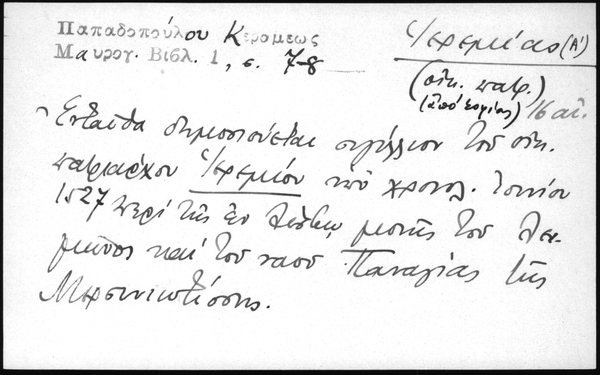 Παπαδοπούλου Κεραμεως
Μαυρογ. Βιβλ. 1, σ. 7-8
Ἱερεμίας (Α')
(οἰκ. πατρ.)
(ἀπό Σοφίας) 16 αἰ.
Ἐνταῦθα δημοσιεύεται σιγίλλιον τοῦ οἰκ.
πατριάρχου Ἱερεμίου ὑπό χρονολ. Ἰουνίου
1527 περί τῆς ἐν Λέσβῳ μονῆς τοῦ Λει-
μῶνος καί τοῦ ναοῦ Παναγίας τῆς
Μυρσινιωτίσσης.